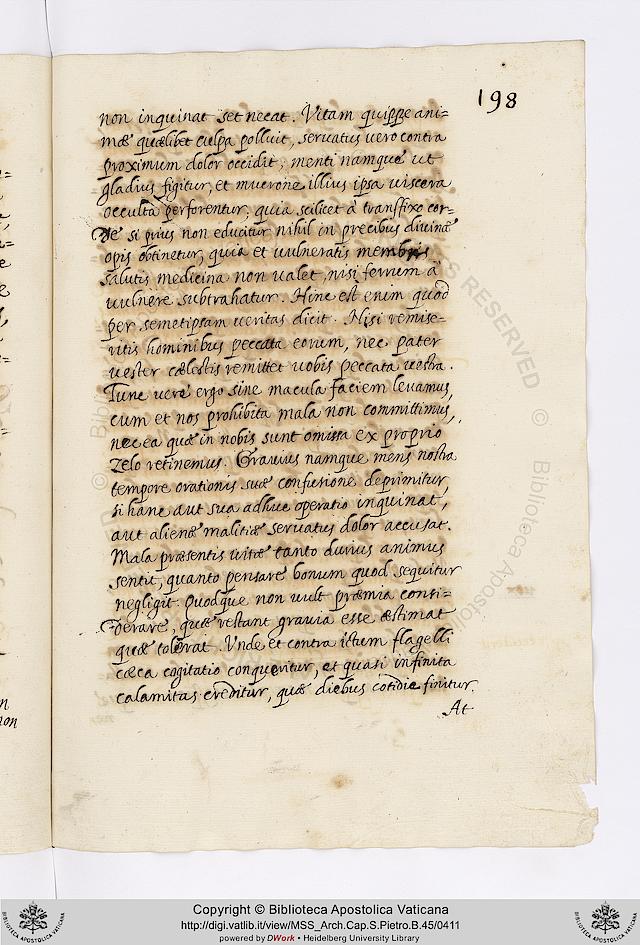 198
non inquinat set necat. Vitam quippe ani=
mæ quælibet culpa polluit, servatus vero contra
proximum dolor occidit; menti namque ut
gladius figitur, et mucrone illius ipsa viscera
occulta perforentur, quia scilicet à transfixo cor-
de si prius non educitur nihil in precibus divinæ
opis obtinetur, quia et vulneratis membris
salutis medicina non valet, nisi ferrum à
vulnere subtrahatur. Hinc est enim quod
per semetipsam veritas dicit. Nisi remise-
ritis hominibus peccata eorum, nec pater
vester cælestis remittet vobis peccata vestra.
Tunc vere ergo sine macula faciem levamus,
cum et nos prohibita mala non committimus,
nec ea quæ in nobis sunt omissa ex proprio
zelo retinemus. Gravius namque mens nostra
tempore orationis suæ confusione deprimitur
si hanc aut sua adhuc operatio inquinat,
aut alienæ malitiæ servatus dolor accusat.
Mala præsentis vitæ tanto durius animus
sentit, quanto pensare bonum quod sequitur
negligit. Quodque non vult præmia consi-
derare, quæ restant gravia esse æstimat
quæ tolerat. Vnde et contra ictum flagelli
cæca cogitatio conqueritur, et quasi infinita
calamitas creditur, quæ diebus cotidie finitur.
At
Copyright © Biblioteca Apostolica Vaticana
http://digi.vatlib.it/view/MSS_Arch.Cap.S.Pietro.B.45/0411
powered by DWork • Heidelberg University Library